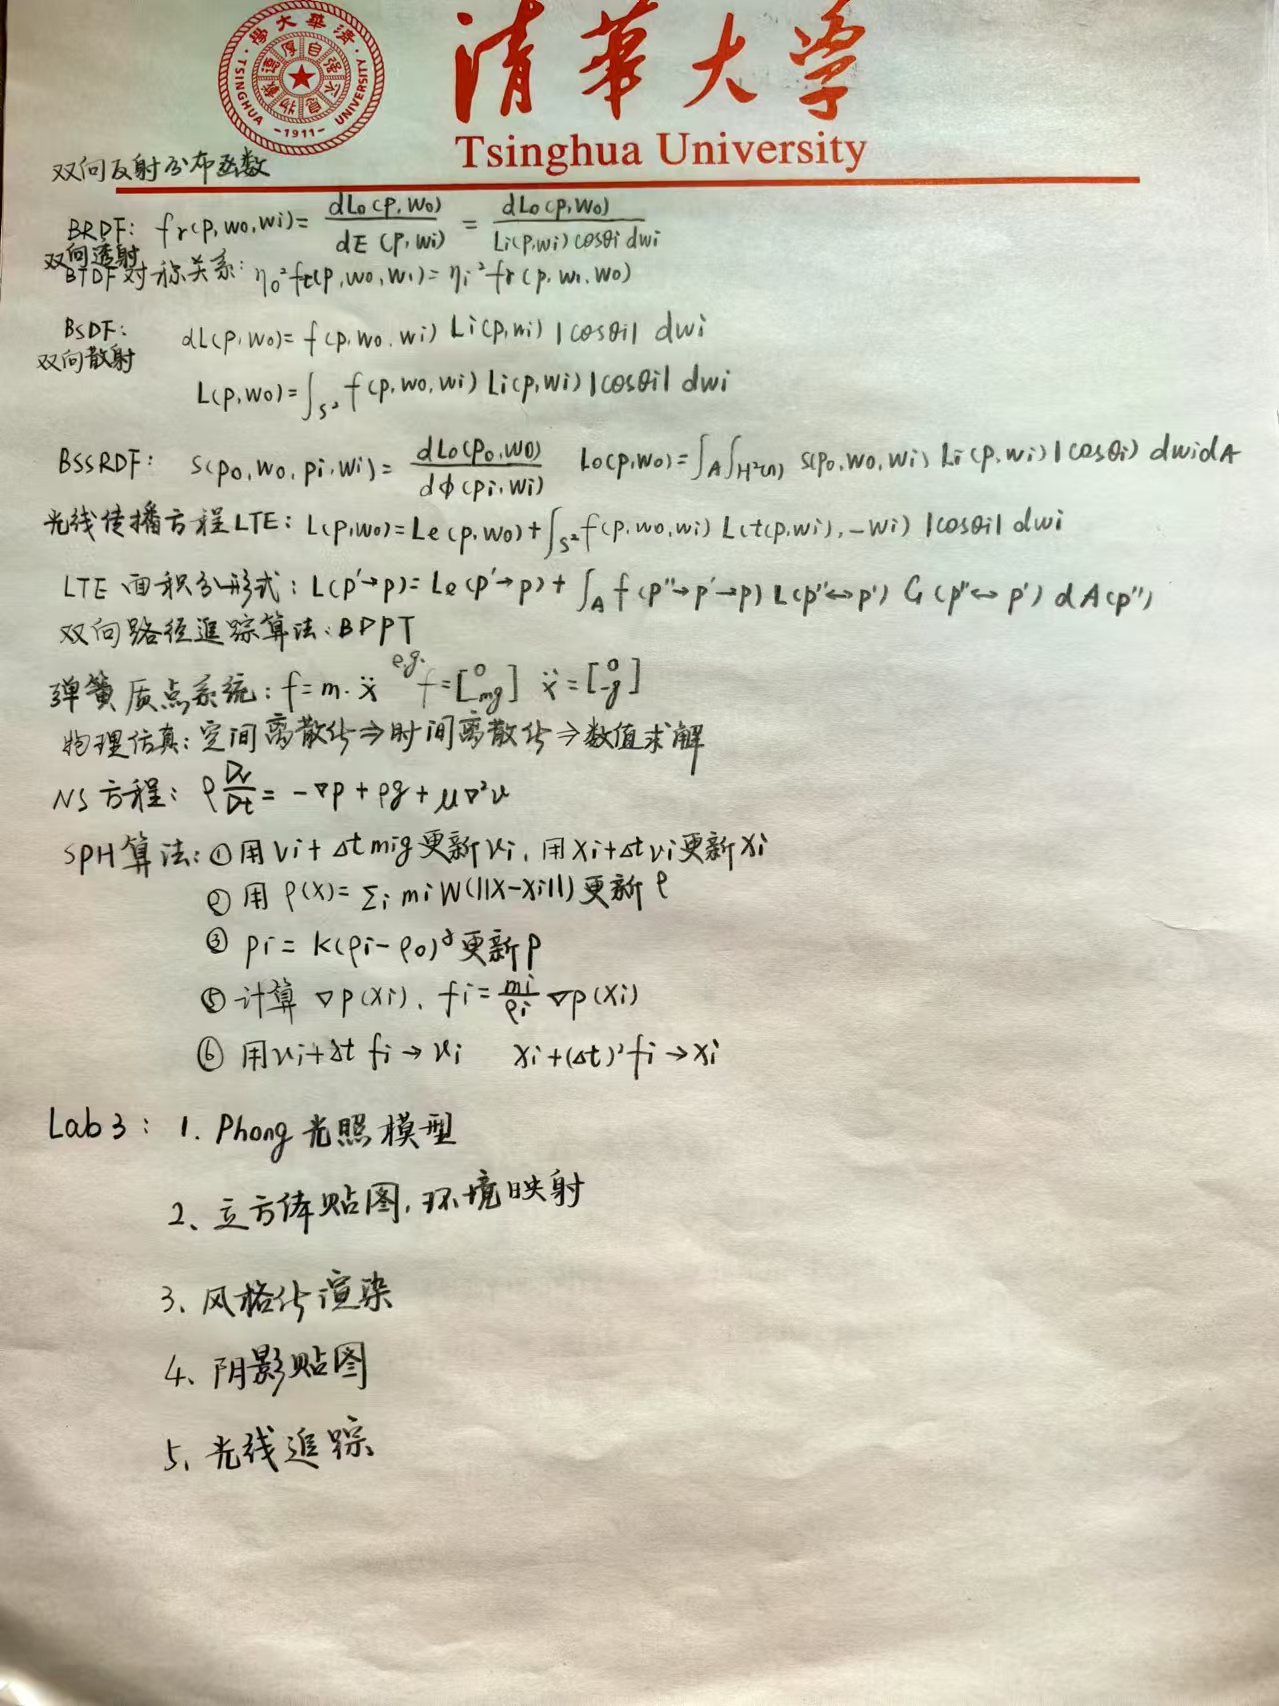 清華大学
Tsinghua University
TSINGHUA UNIVERSITY
-1911-
双向反射分布函数
BRDF: fr(p,wo,wi)= dLo(p,wo) / dE(p,wi) = dLo(p,wo) / Li(p,wi)cosθi dwi
双向透射
BTDF对称关系: ηo²ft(p,wo,wi)=ηi²fr(p,wi,wo)
BSDF: dL(p,wo)= f(p,wo,wi) Li(p,wi) |cosθi| dwi
双向散射
L(p,wo)=∫s² f(p,wo,wi) Li(p,wi) |cosθi| dwi
BSSRDF: S(po,wo,pi,wi)= dLo(po,wo) / dϕ(pi,wi) Lo(p,wo)=∫A∫H²(n) S(po,wo,wi) Li(p,wi)|cosθi) dwidA
光线传播方程LTE: L(p,wo)=Le(p,wo)+∫s² f(p,wo,wi) L(t(p,wi),-wi) |cosθi| dwi
LTE 面积分形式: L(p'→p)= Le(p'→p)+ ∫A f(p''→p'→p) L(p''↔p') G(p''↔p') dA(p'')
双向路径追踪算法: BDPT
弹簧质点系统: f=m·ẍ e.g. f=[0 -mg] ẍ=[0 -g]
物理仿真: 空间离散化⇒时间离散化⇒数值求解
NS方程: ρ Dv/Dt = -∇p+ρg+μ∇²v
SPH算法: ①用vi+Δtmig更新vi, 用xi+Δtvi更新xi
② 用 ρ(x)= Σi mi W(||x-xi||) 更新 ρ
③ pi = k(ρi-ρ0)^γ 更新p
⑤ 计算 ∇p(xi), fi= mi/ρi ∇p(xi)
⑥ 用vi+Δt fi→vi xi+(Δt)²fi→xi
Lab3: 1. Phong光照模型
2、立方体贴图,环境映射
3、风格化渲染
4、阴影贴图
5、光线追踪